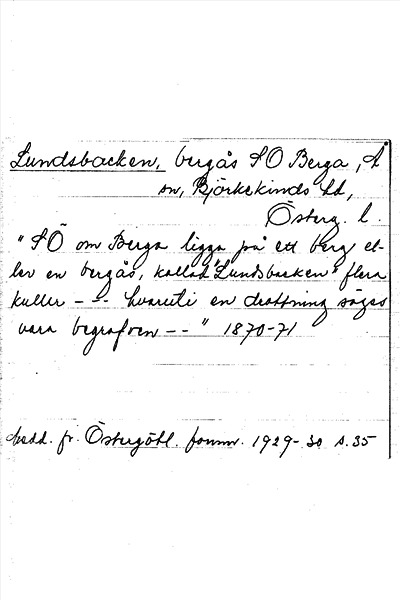 Lundsbacken, bergås SO Berga, Å
sn, Björkekinds hd,
Österg. l.
"SÖ om Berga ligga på ett berg el-
ler en bergås, kallad "Lundsbacken" flera
kullar - - - hvaruti en drottning säges
vara begrafven - - " 1870-71
Medd. fr. Östergötl. fornm. 1929-30 s. 35